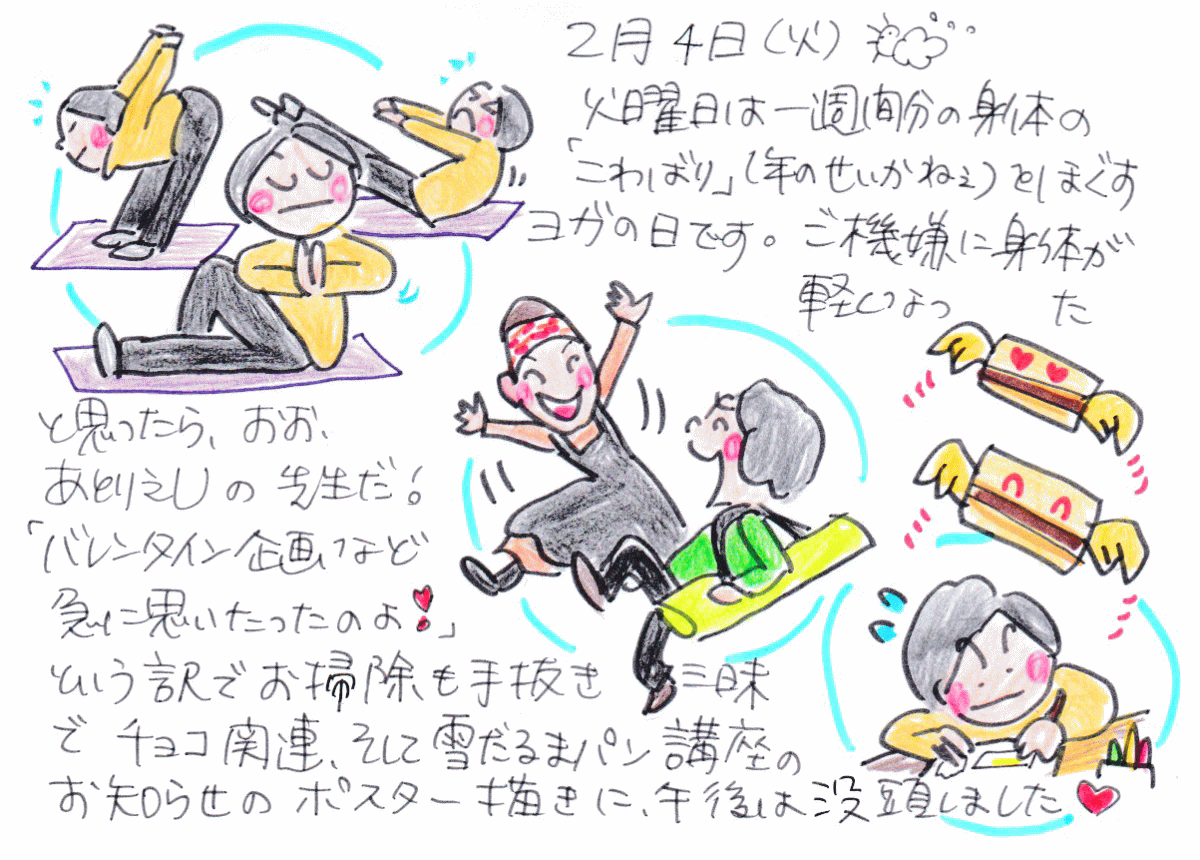 2月4日(火)
火曜日は一週間分の身体の
「こわばり」(年のせいかねぇ)をほぐす
ヨガの日です。ご機嫌に身体が
軽くなった
と思ったら、おお、
あとりえしの先生だ!
「バレンタイン企画など
急に思いたったのよ!」
という訳でお掃除も手抜き三昧
でチョコ関連、そして雪だるまパン講座の
お知らせのポスター描きに、午後は没頭しました